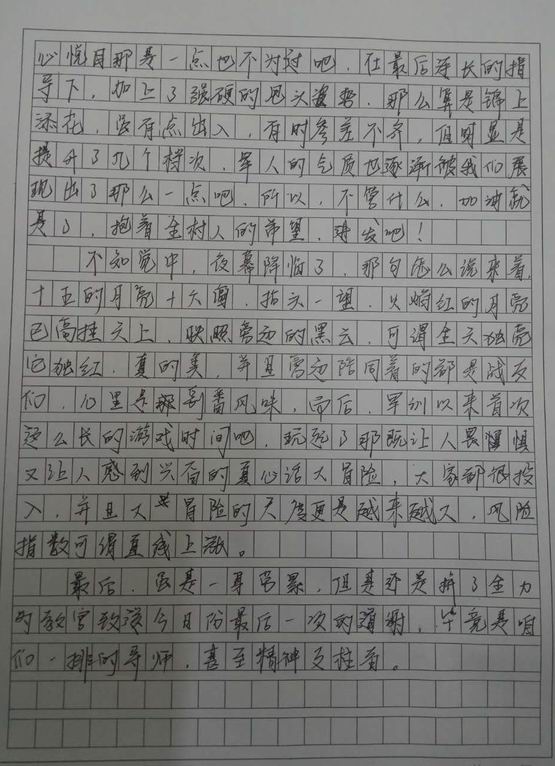 心悦目那是一点也不为过吧，在最后连长的指
导下，加上了强硬的见头没势，那么算是锦上
添花，虽有点出入，有时参差不齐，但明显是
提升了几个档次，军人的气质也逐渐被我们展
现出了那么一点吧，所以，不管什么，加油就
是了，抱着全村人的希望，进发吧！
不知觉中，夜幕降临了，那句怎么说来着，
十五的月亮十六圆，抬头一望，火焰红的月亮
已高挂天上，映照旁边的黑云，可谓全天独亮
它独红，真的美，并且旁边陪同着的都是战友
们，心里是别番风味，而后，军训以来首次
这么长的游戏时间吧，玩起了那既让人畏惧
又让人感到兴奋的真心话大冒险，大家都很投
入，并且大冒险的尺度更是越来越大，风险
指数可谓直线上涨。
最后，虽是一身劳累，但真还是拼了全力
为教官致谢今日份最后一次的道谢，毕竟是咱
们一排的导师，甚至精神支柱着。